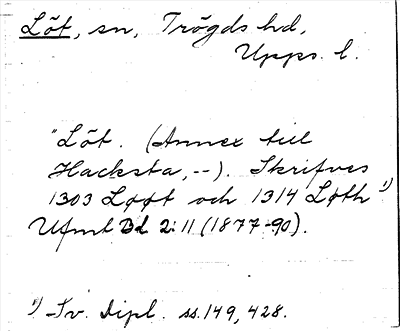 Löt, sn, Trögds hd,
Upps. l.
"Löt. (Annex till
Hacksta, --). Skrifves
1303 Løøt och 1314 Løth" ¹)
Ufmt Bd 2:11 (1877-90).
¹) Sv. Dipl. ss. 149, 428.